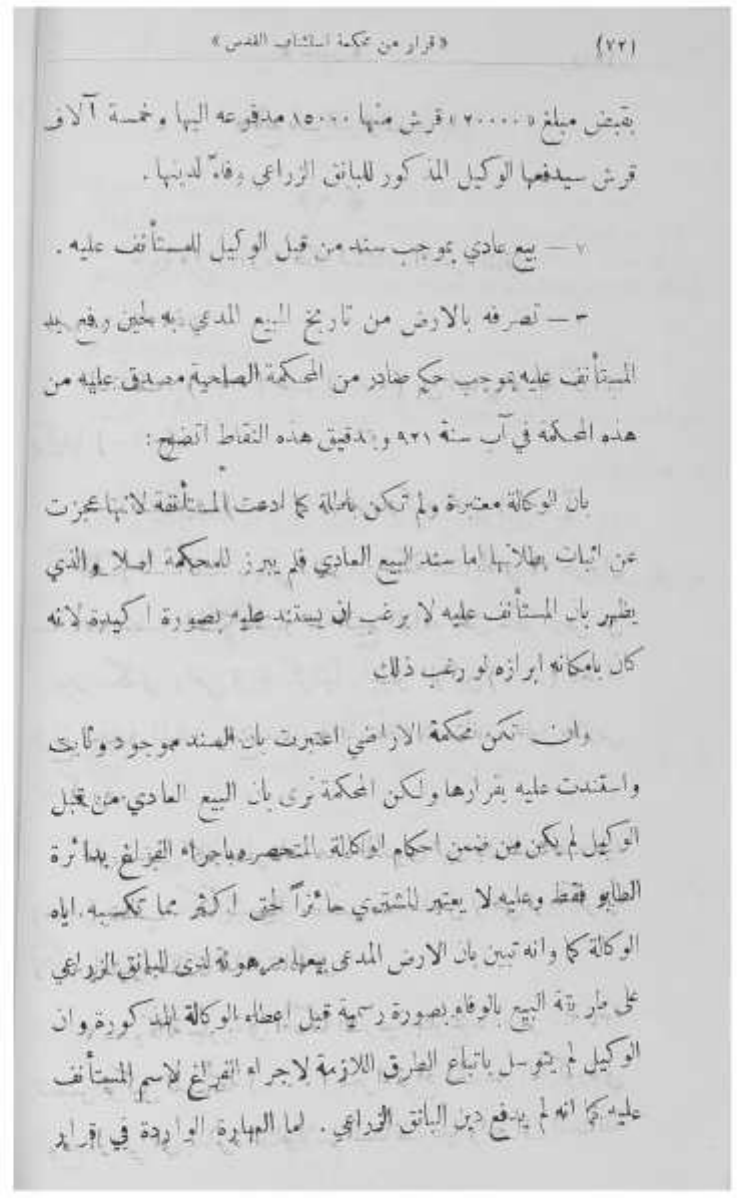 (٧٢) «قرار من محكمة استئناف القدس»
بقبض مبلغ «٢٠٠٠٠» قرش منها ١٥٠٠٠ مدفوعه اليها وخمسة آلاف
قرش سيدفعها الوكيل المذكور للبانق الزراعي وفاءً لدينها .
٧ — بيع عادي بموجب سند من قبل الوكيل للمستأنف عليه .
٣ — تصرفه بالارض من تاريخ البيع المدعي به لحين رفع يد
المستأنف عليه بموجب حكم صادر من المحكمة الصلحية مصدق عليه من
هذه المحكمة في آب سنة ٩٢١ وبتدقيق هذه النقاط اتضح :
بان الوكالة معتبرة ولم تكن باطلة كما ادعت المستأنفة لانها عجزت
عن اثبات بطلانها اما سند البيع العادي فلم يبرز للمحكمة اصلا والذي
يظهر بان المستأنف عليه لا يرغب ان يستند عليه بصورة اكيدة لانه
كان بامكانه ابرازه لو رغب ذلك
وان تكن محكمة الاراضي اعتبرت بان السند موجود وثابت
واستندت عليه بقرارها ولكن المحكمة نرى بان البيع العادي من قبل
الوكيل لم يكن من ضمن احكام الوكالة المنحصره باجراء الفراغ بدائرة
الطابو فقط وعليه لا يعتبر المشتري حائزاً لحق اكثر مما تكسبه اياه
الوكالة كما وانه تبين بان الارض المدعى بيعها مرهونة لدى للبانق الزراعي
على طريقة البيع بالوفاء بصورة رسمية قبل اعطاء الوكالة المذكورة وان
الوكيل لم يتوسل باتباع الطرق اللازمة لاجراء الفراغ لاسم المستأنف
عليه كما انه لم يدفع دين البانق الزراعي . اما العبارة الواردة في قرار